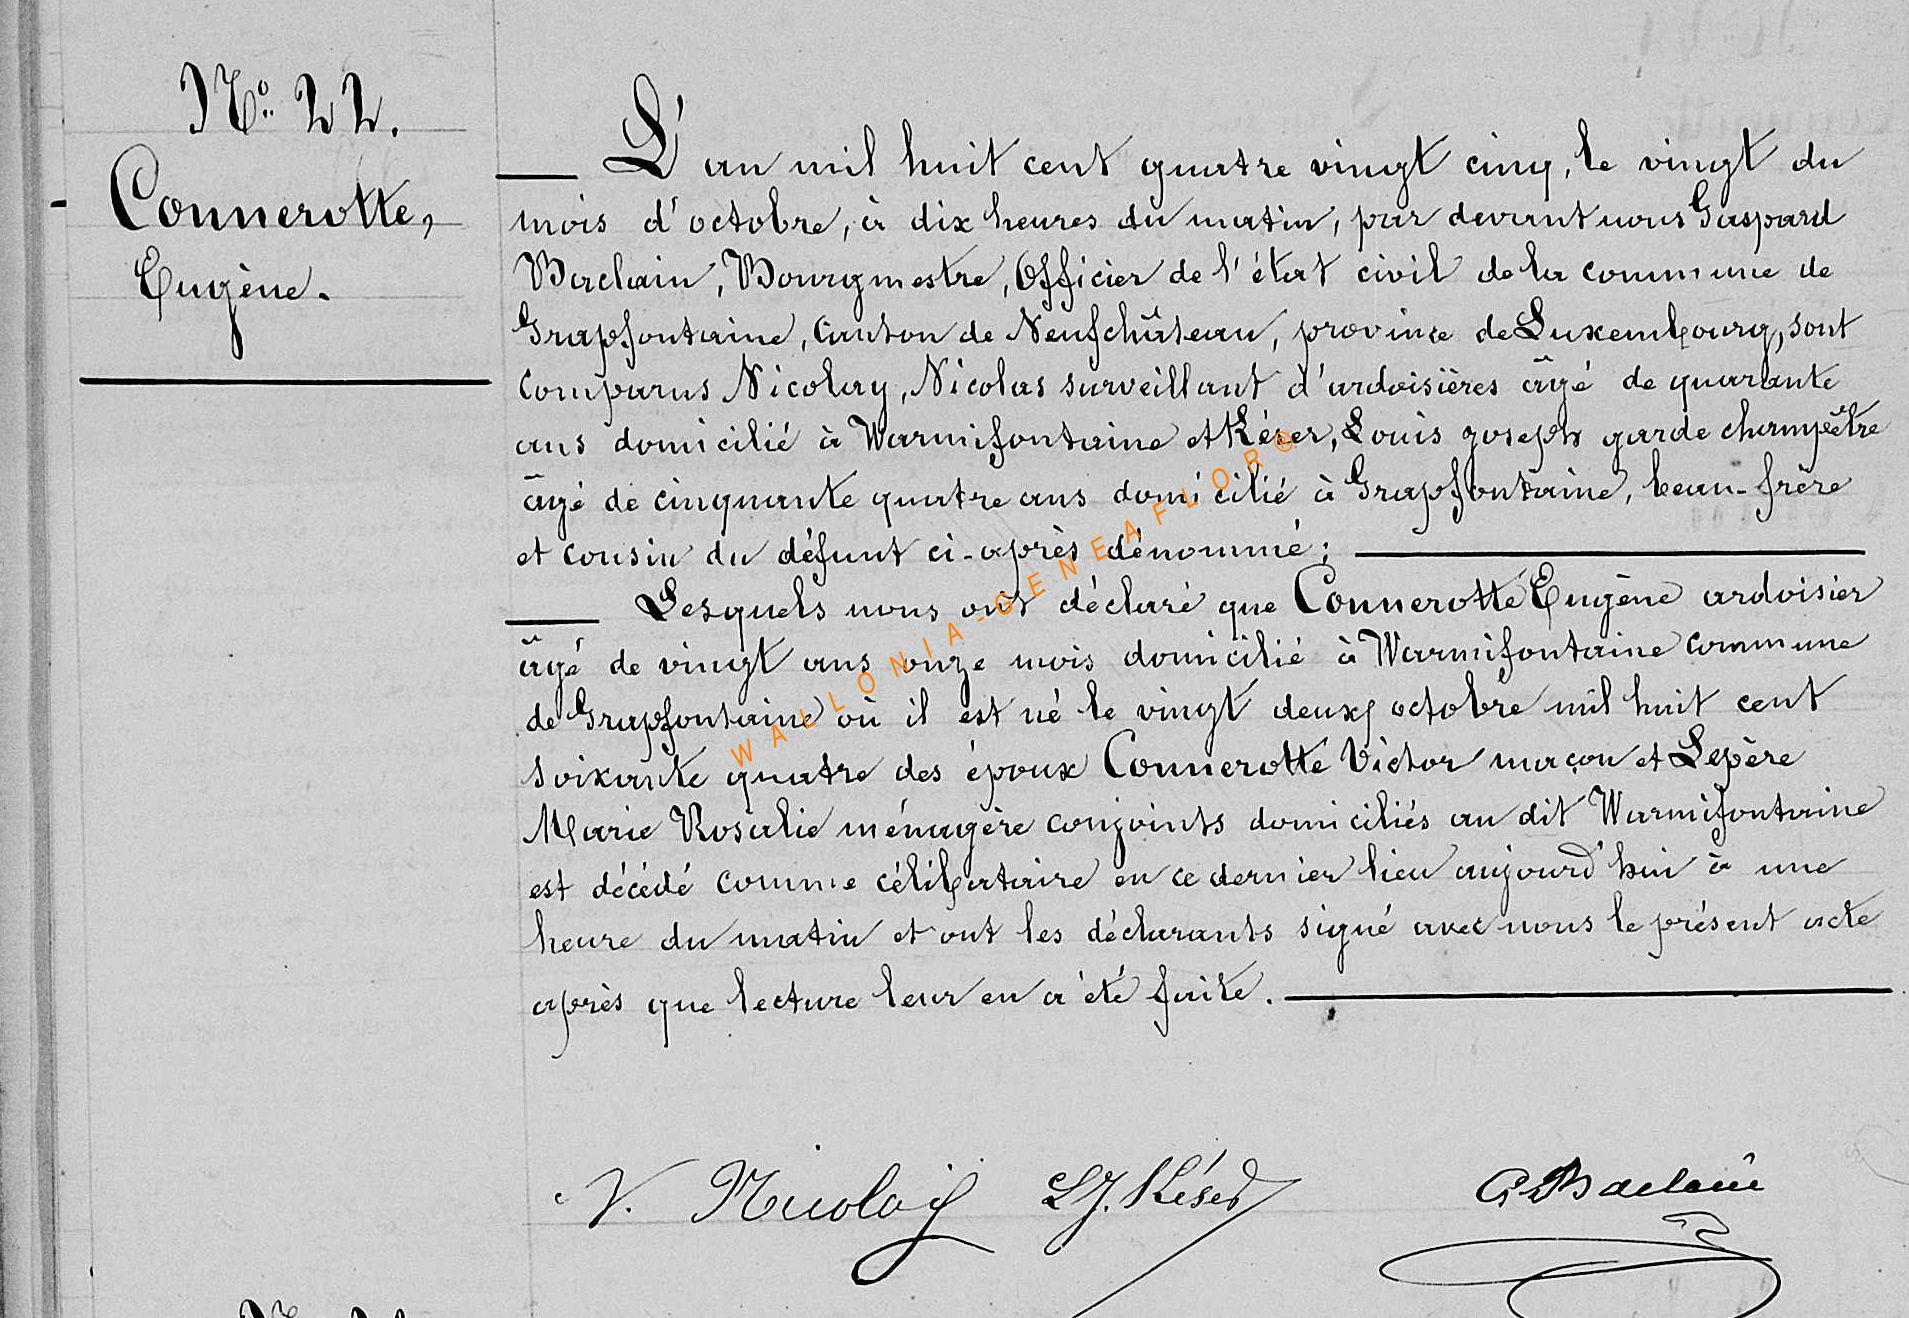 N° 22.
Connerotte,
Eugène.
L'an mil huit cent quatre vingt cinq, le vingt du
mois d'octobre, à dix heures du matin, par devant nous Gaspard
Baclain, Bourgmestre, Officier de l'état civil de la commune de
Grapfontaine, Canton de Neufchâteau, province de Luxembourg, sont
comparus Nicolay, Nicolas surveillant d'ardoisières âgé de quarante
ans domicilié à Warmifontaine et Késer, Louis Joseph garde champêtre
âgé de cinquante quatre ans domicilié à Grapfontaine, beau-frère
et cousin du défunt ci-après dénommé;
Lesquels nous ont déclaré que Connerotte Eugène ardoisier
âgé de vingt ans onze mois domicilié à Warmifontaine commune
de Grapfontaine où il est né le vingt deux octobre mil huit cent
soixante quatre des époux Connerotte Victor maçon et Lepère
Marie Rosalie ménagère conjoints domiciliés au dit Warmifontaine
est décédé comme célibataire en ce dernier lieu aujourd'hui à une
heure du matin et ont les déclarants signé avec nous le présent acte
après que lecture leur en a été faite.
N. Nicolay LJ. Késer G Baclain
WALLONIA-GENEAFLOR©